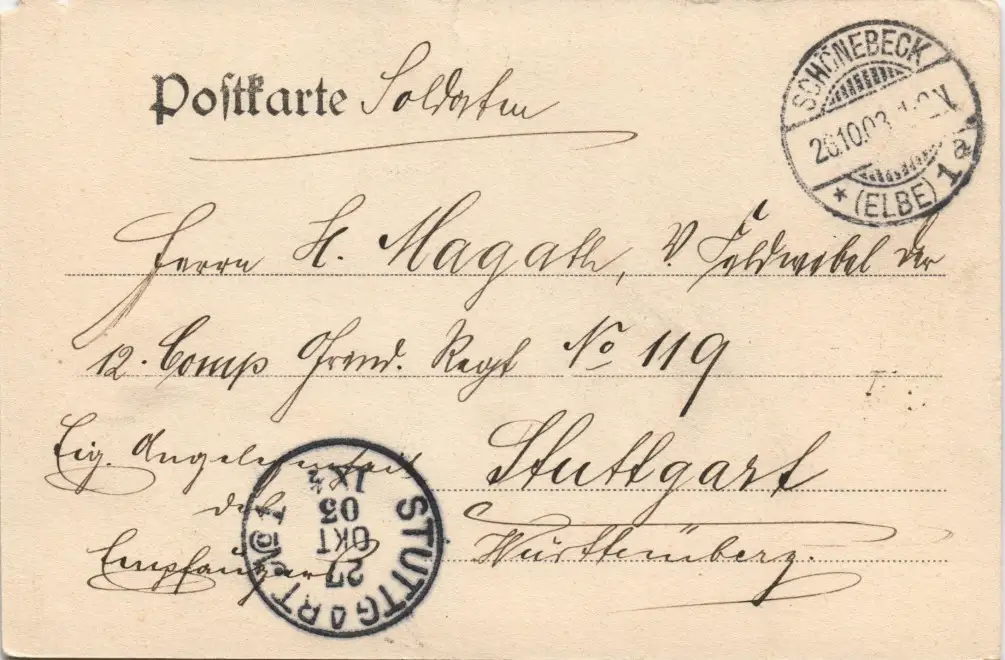 Postkarte Soldaten
SCHÖNEBECK
26.10.03. 1-2N
* (ELBE) 1a
Herrn H. Magath, V. Feldwebel der
12. Comp Grend. Regt No 119
Stuttgart
Württemberg.
Eig. Angelegenheit
des
Empfängers
STUTTGART No 1
27
OKT
03
IX ½